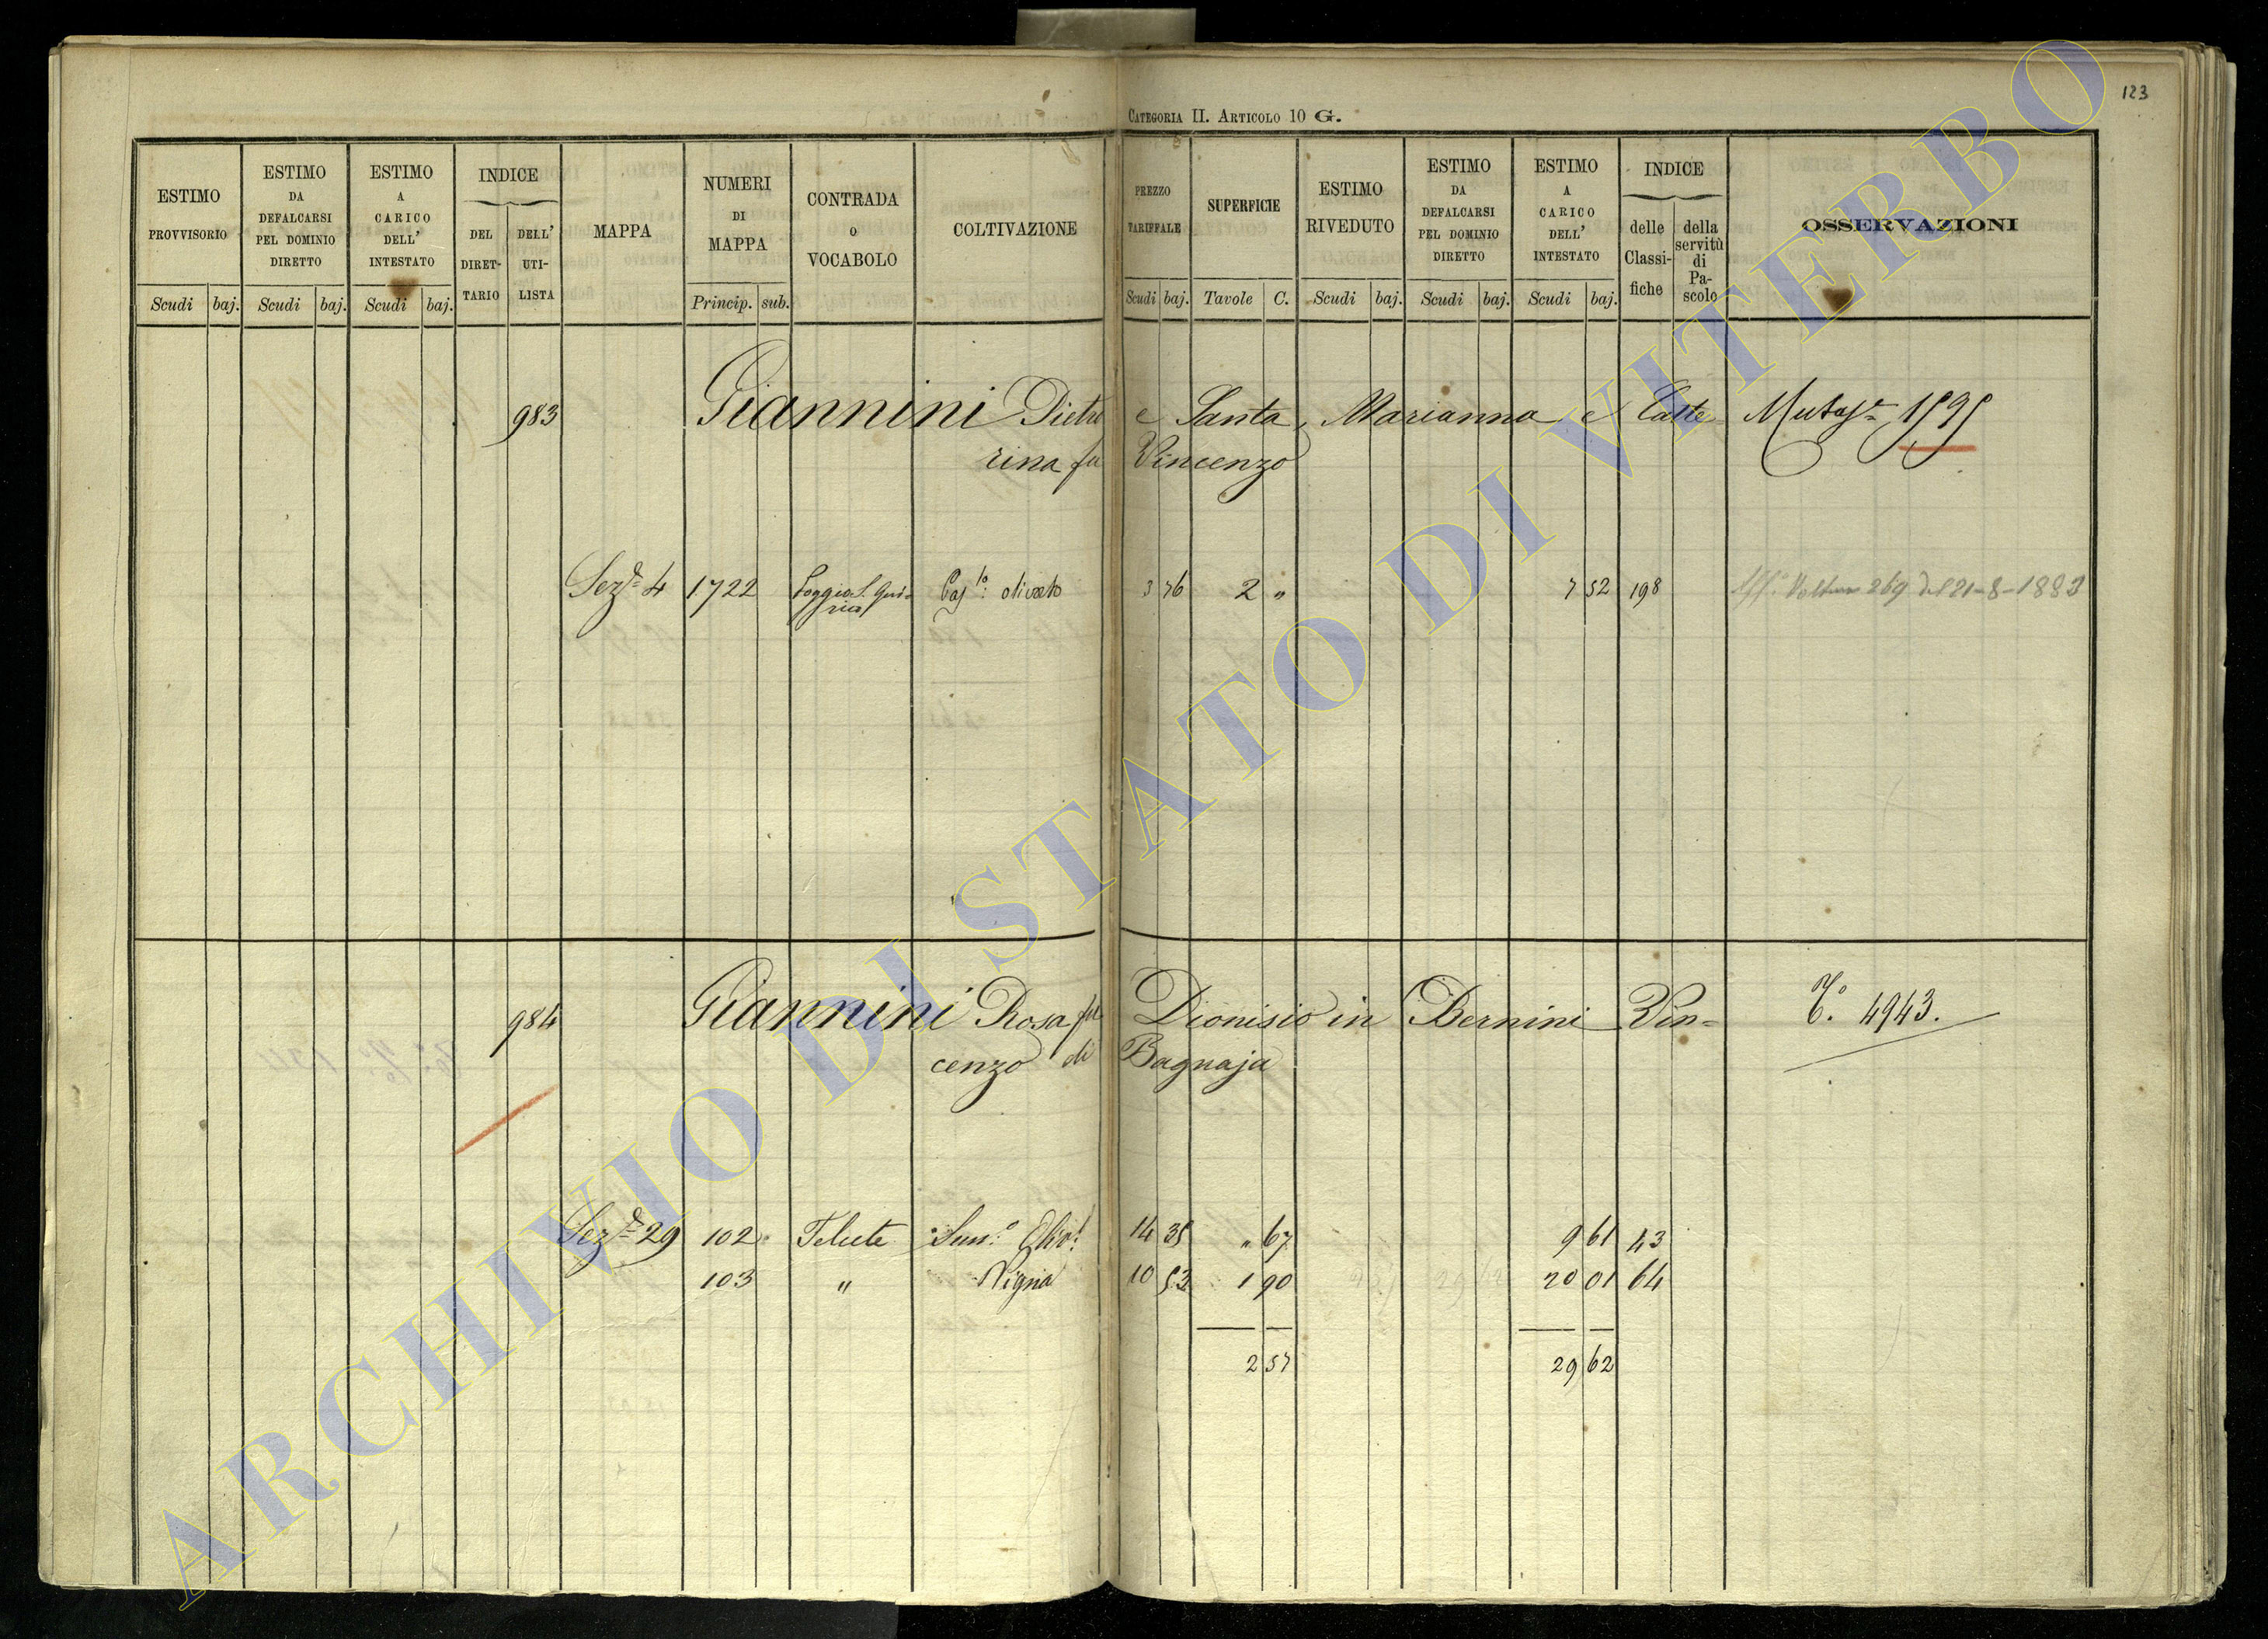 123
CATEGORIA II. ARTICOLO 10 G.
ESTIMO PROVVISORIO
ESTIMO DA DEFALCARSI PEL DOMINIO DIRETTO
ESTIMO A CARICO DELL' INTESTATO
INDICE
DEL DIRET-TARIO
DELL' UTI-LISTA
MAPPA
NUMERI DI MAPPA
CONTRADA O VOCABOLO
COLTIVAZIONE
PREZZO TARIFFALE
SUPERFICIE
ESTIMO RIVEDUTO
ESTIMO DA DEFALCARSI PEL DOMINIO DIRETTO
ESTIMO A CARICO DELL' INTESTATO
INDICE
delle Classi-fiche
della servitù di Pa-scolo
OSSERVAZIONI
Scudi baj. Scudi baj. Scudi baj. Princip. sub. Scudi baj. Tavole C. Scudi baj. Scudi baj. Scudi baj.
983 Giannini Pietro e Santa, Marianna e Catte
rina fu Vincenzo
Sez.e 4 1722 Poggio S. Qui-rico olivato 3 76 2 " 7 52 198 269 del 21-8-1883
984 Giannini Rosa fu Dionisio in Bernini Vin= T.o 4943.
cenzo di Bagnaja
Sez.e 29 102 Sem.o Oliv.t 14 35 " 67 9 61 43
103 " Vigna 10 53 1 90 20 01 64
2 57 29 62
ARCHIVIO DI STATO DI VITERBO